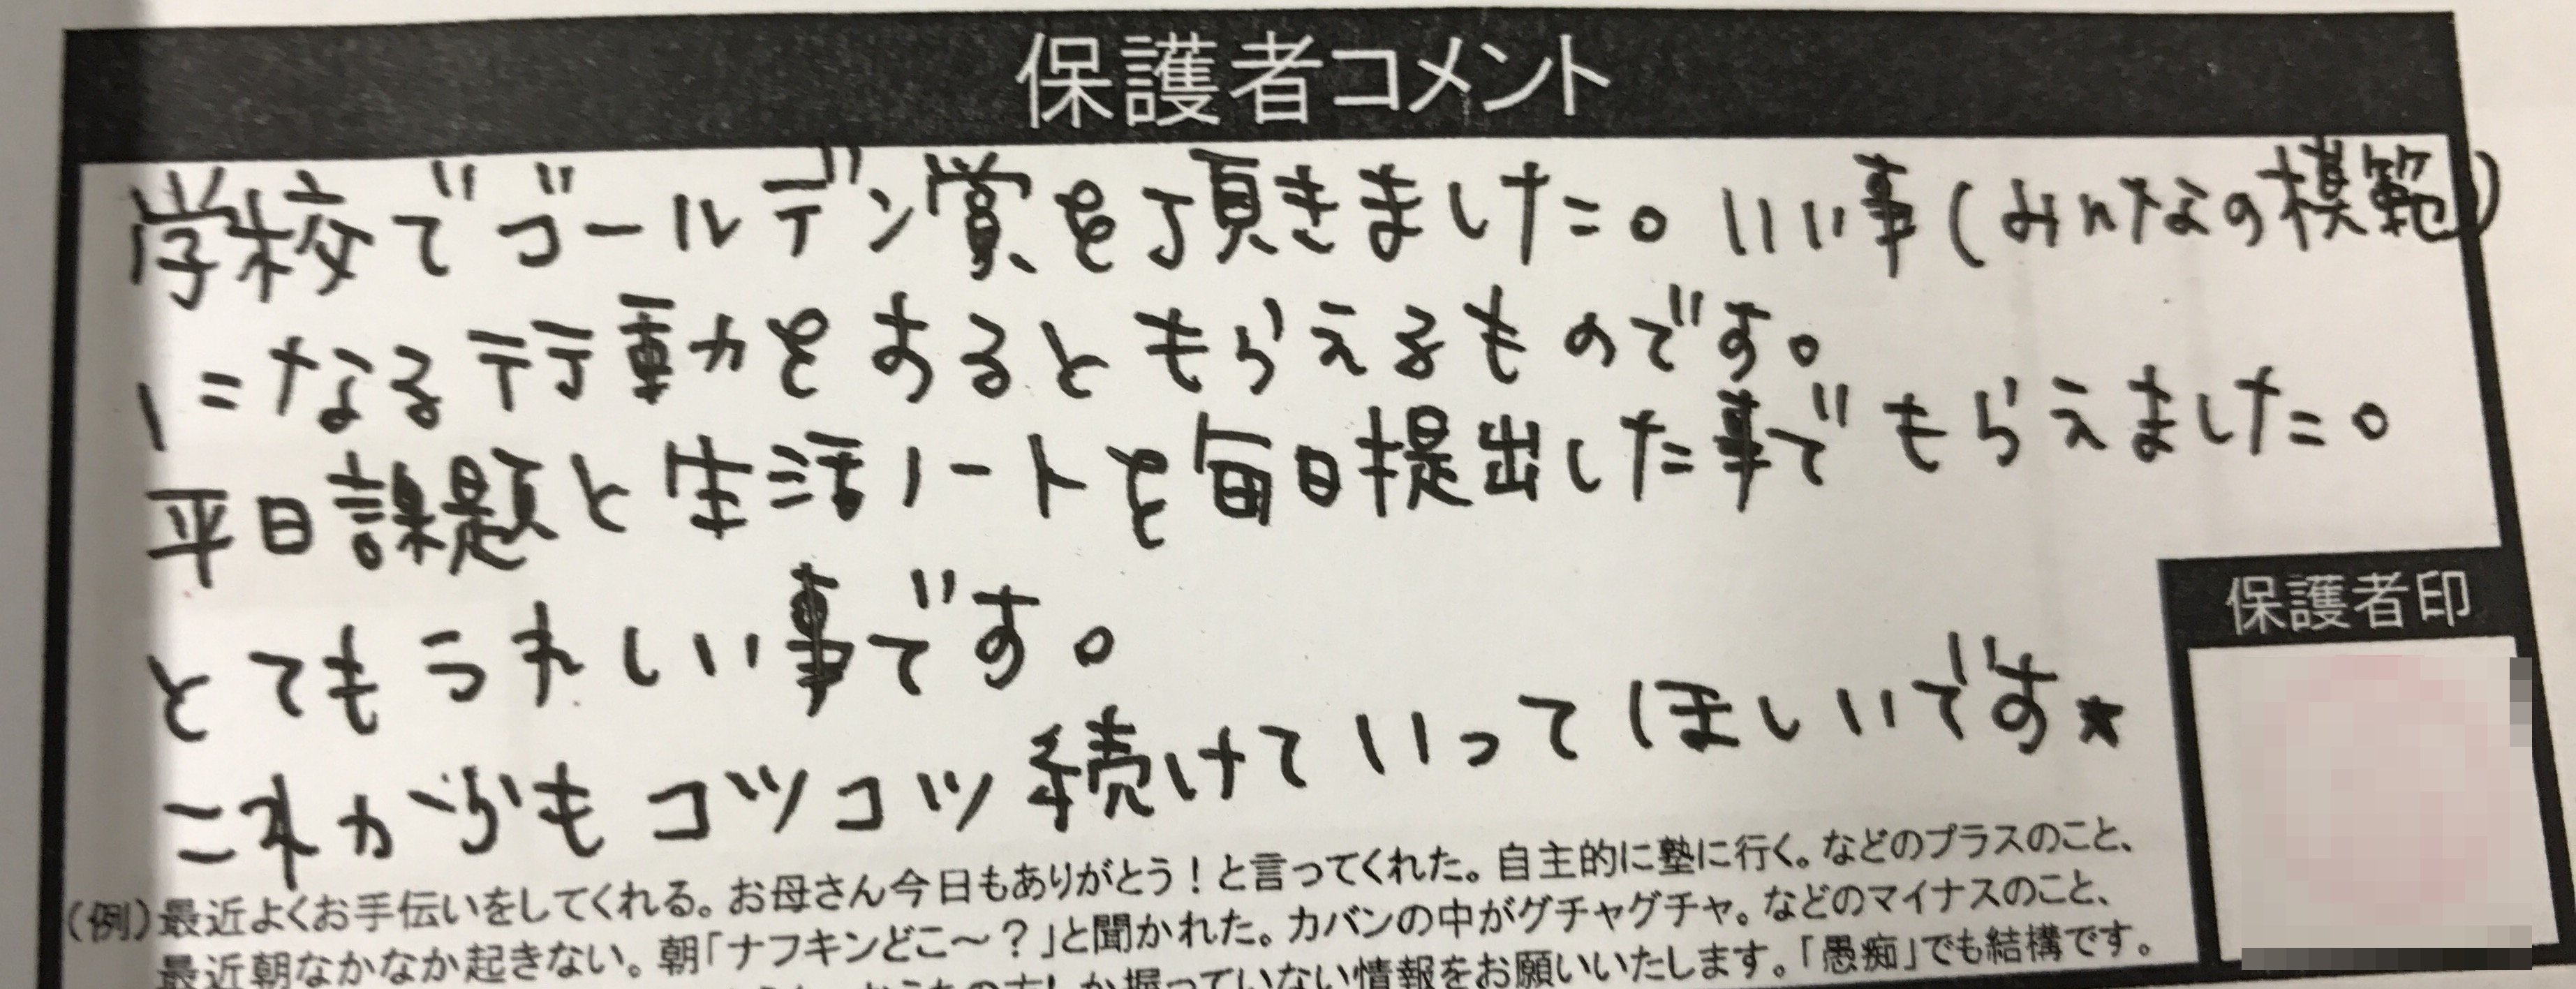 保護者コメント
学校でゴールデン賞を頂きました。いい事(みんなの模範)
になる行動をするともらえるものです。
平日課題と生活ノートを毎日提出した事でもらえました。
とてもうれしい事です。
これからもコツコツ続けていってほしいです★
保護者印
(例)最近よくお手伝いをしてくれる。お母さん今日もありがとう!と言ってくれた。自主的に塾に行く。などのプラスのこと、
最近朝なかなか起きない。朝「ナフキンどこ〜?」と聞かれた。カバンの中がグチャグチャ。などのマイナスのこと、
しか握っていない情報をお願いいたします。「愚痴」でも結構です。